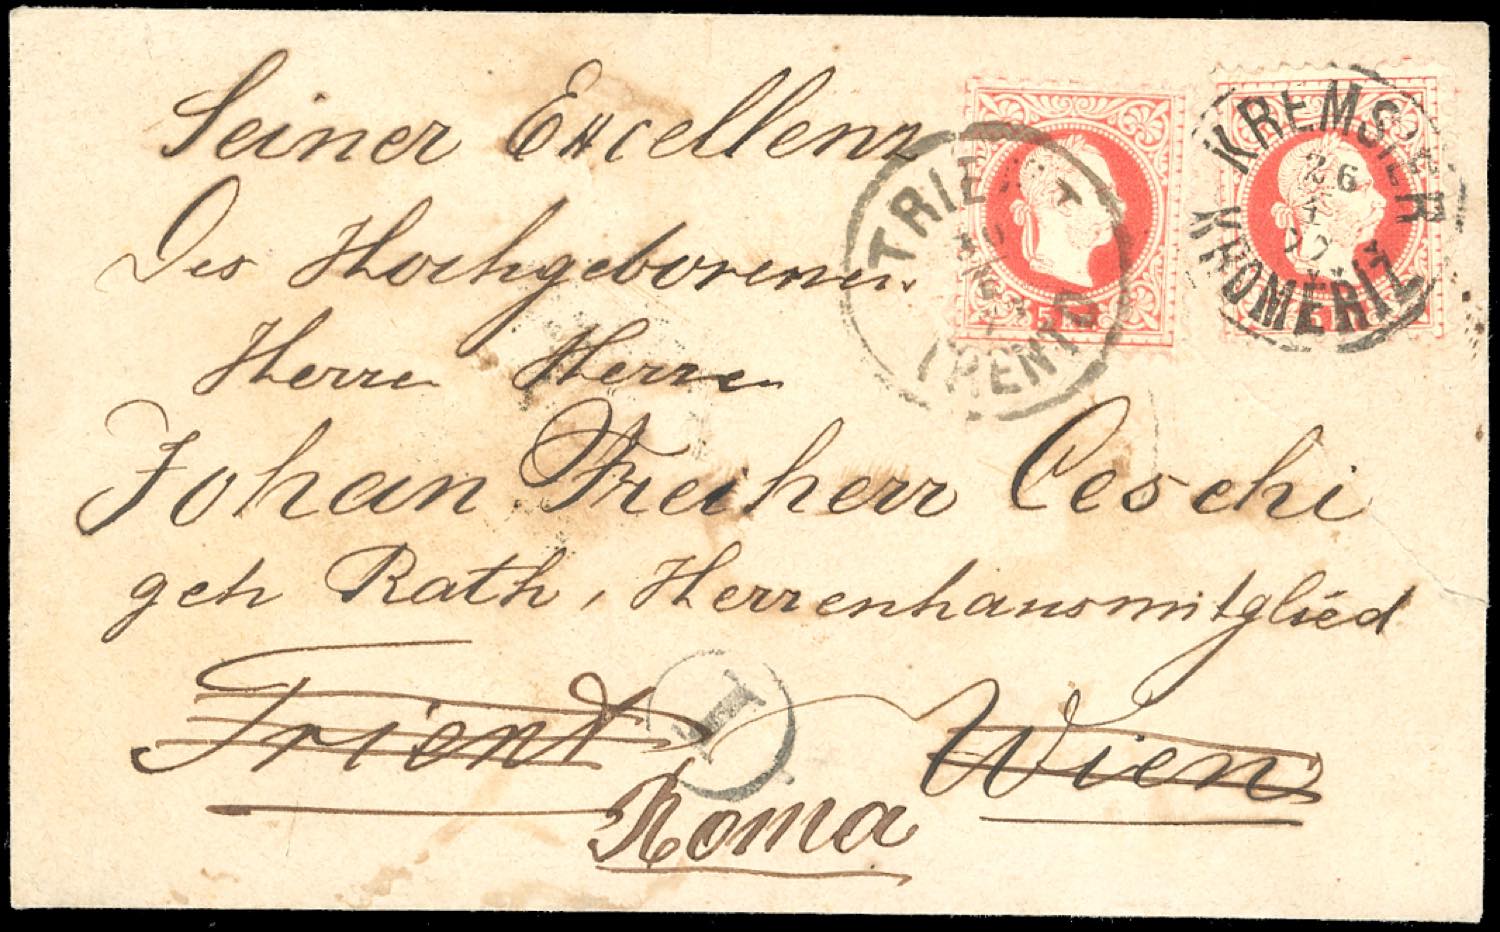 Seiner Excellenz
Des Hochgeborenen
Herrn Herrn
Johan Freiherr Ceschi
geh Rath, Herrenhausmitglied
Trient Wien
Roma
TRIENT
TRENTO
KREMSIER
26
KROMĚŘÍŽ
5
5